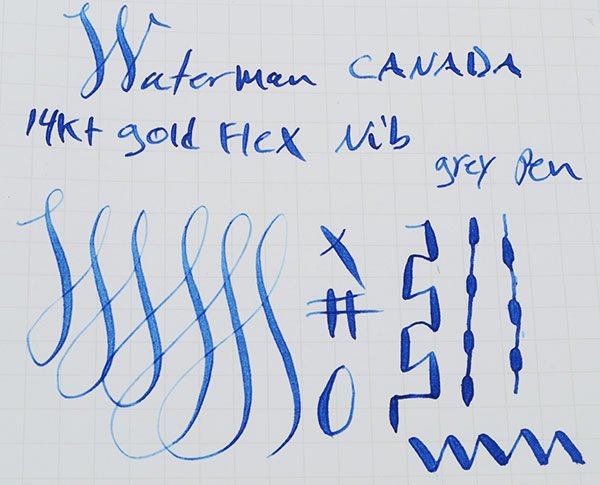 Waterman CANADA
14Kt gold Flex Nib
grey Pen